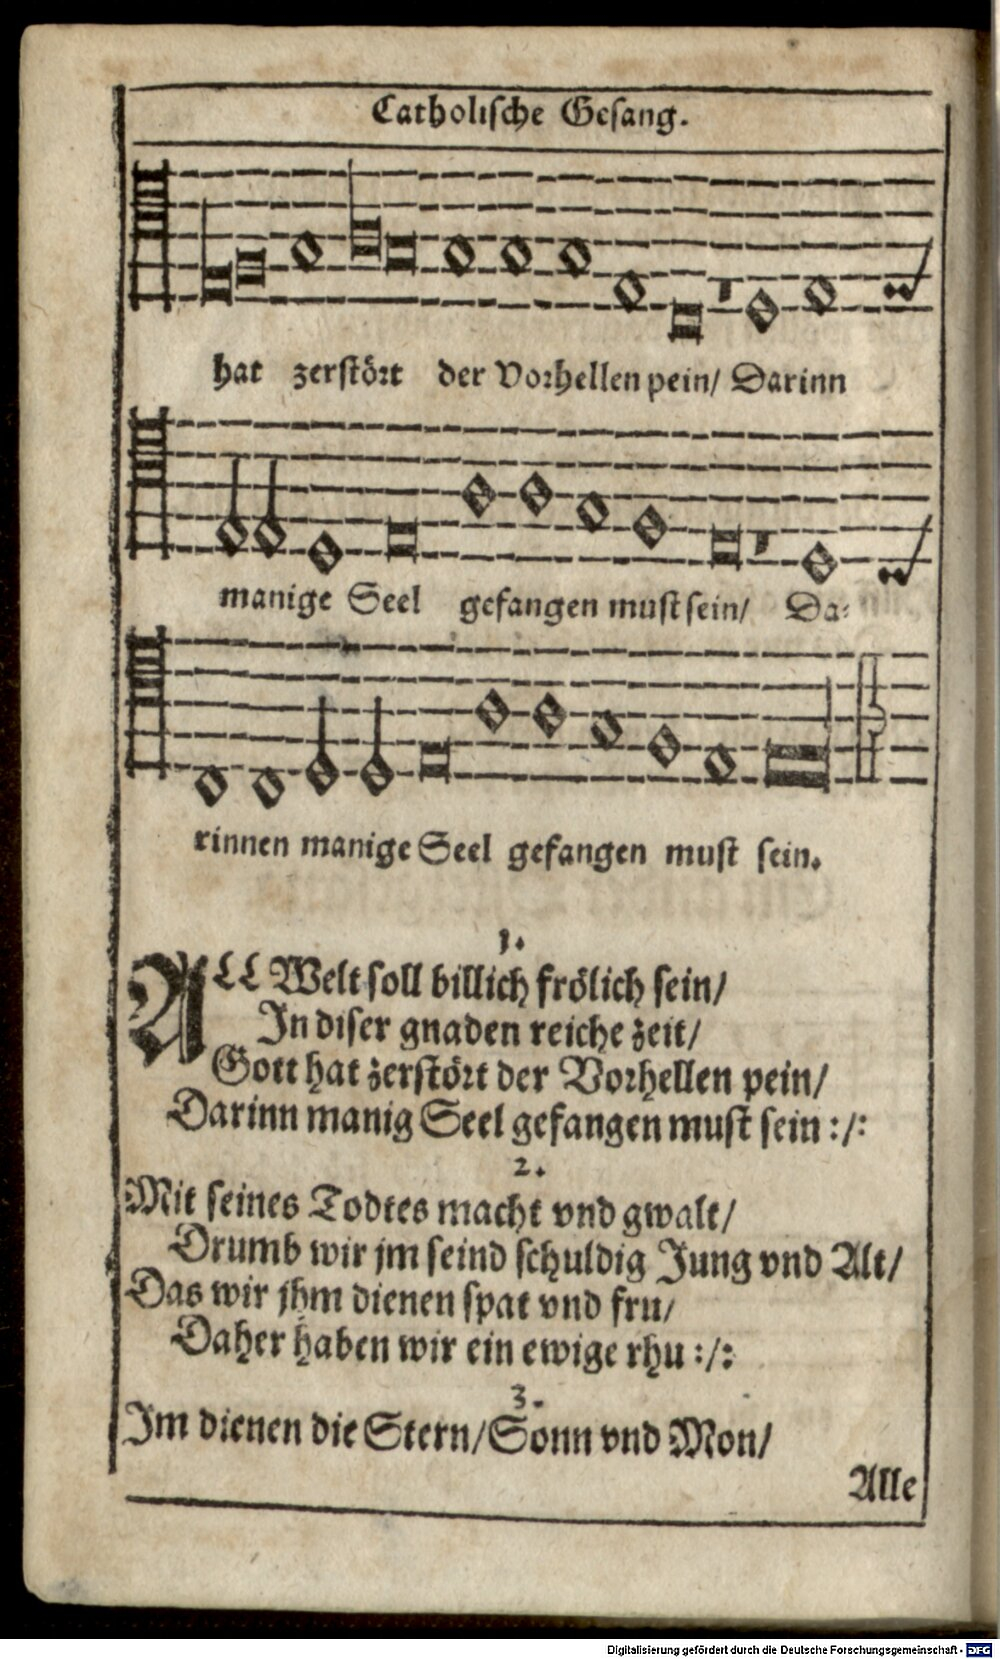 Catholische Gesang.
hat zerstört der Vorhellen pein/ Darinn
manige Seel gefangen must sein/ Da-
rinnen manige Seel gefangen must sein.
1.
ALL Welt soll billich frölich sein/
In diser gnaden reiche zeit/
Gott hat zerstört der Vorhellen pein/
Darinn manig Seel gefangen must sein :/:
2.
Mit seines Todtes macht vnd gwalt/
Drumb wir jm seind schuldig Jung vnd Alt/
Das wir jhm dienen spat vnd fru/
Daher haben wir ein ewige rhu :/:
3.
Im dienen die Stern/Sonn vnd Mon/
Alle
Digitalisierung gefördert durch die Deutsche Forschungsgemeinschaft - DFG